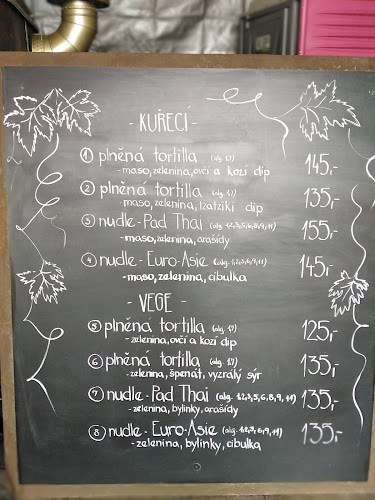 - KUŘECÍ -
① plněná tortilla (alg. 1,7) 145,-
- maso, zelenina, ovčí a kozí dip
② plněná tortilla (alg. 1,7) 135,-
- maso, zelenina, tzatziki dip
③ nudle - Pad Thai (alg. 1,2,3,5,6,8,9,11) 155,-
- maso, zelenina, arašídy
④ nudle - Euro-Asie (alg. 1,2,3,6,9,11) 145,-
- maso, zelenina, cibulka
- VEGE -
⑤ plněná tortilla (alg. 1,7) 125,-
- zelenina, ovčí a kozí dip
⑥ plněná tortilla (alg. 1,7) 135,-
- zelenina, špenát, vyzrálý sýr
⑦ nudle - Pad Thai (alg. 1,2,3,5,6,8,9,11) 135,-
- zelenina, bylinky, arašídy
⑧ nudle - Euro-Asie (alg. 1,2,3,6,9,11) 135,-
- zelenina, bylinky, cibulka